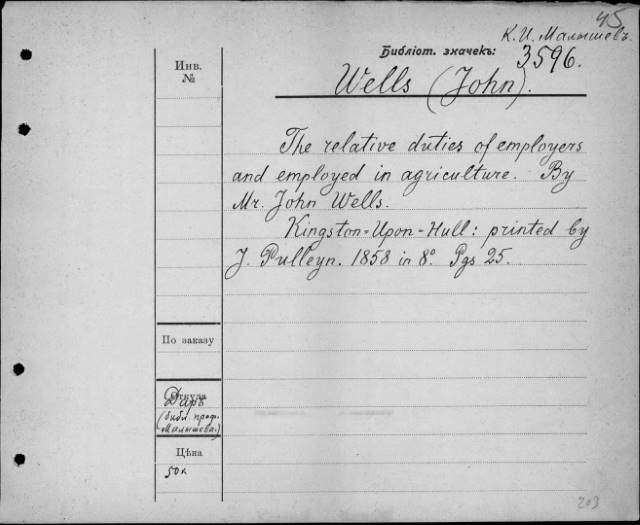 45
К. И. Малышевъ.
Библіот. значекъ:
3596.
Wells (John).
Инв.
№
The relative duties of employers
and employed in agriculture. By
Mr. John Wells.
Kingston-Upon-Hull: printed by
J. Pulleyn. 1858 in 8º. Pgs 25.
По заказу
Откуда
Даръ
(библ. проф.
Малышева.)
Цѣна
50к
203